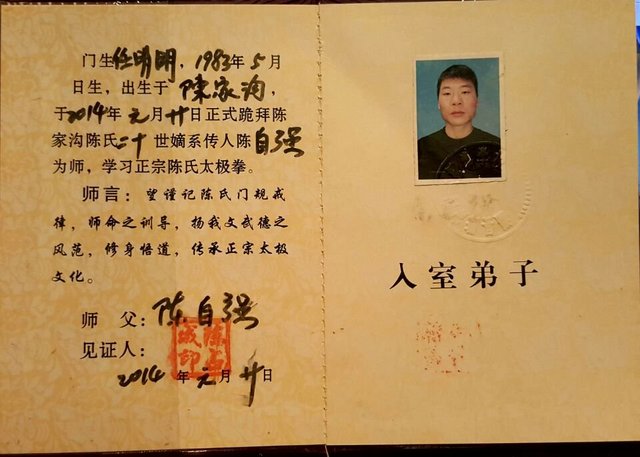 门生任明明，1983年5月
日生，出生于陳家沟，
于2014年元月廿日正式跪拜陈
家沟陈氏二十世嫡系传人陈自强
为师，学习正宗陈氏太极拳。
师言：望谨记陈氏门规戒
律，师命之训导，扬我文武德之
风范，修身悟道，传承正宗太极
文化。
师 父：陈自强
见证人：
2014年元月廿日
入室弟子